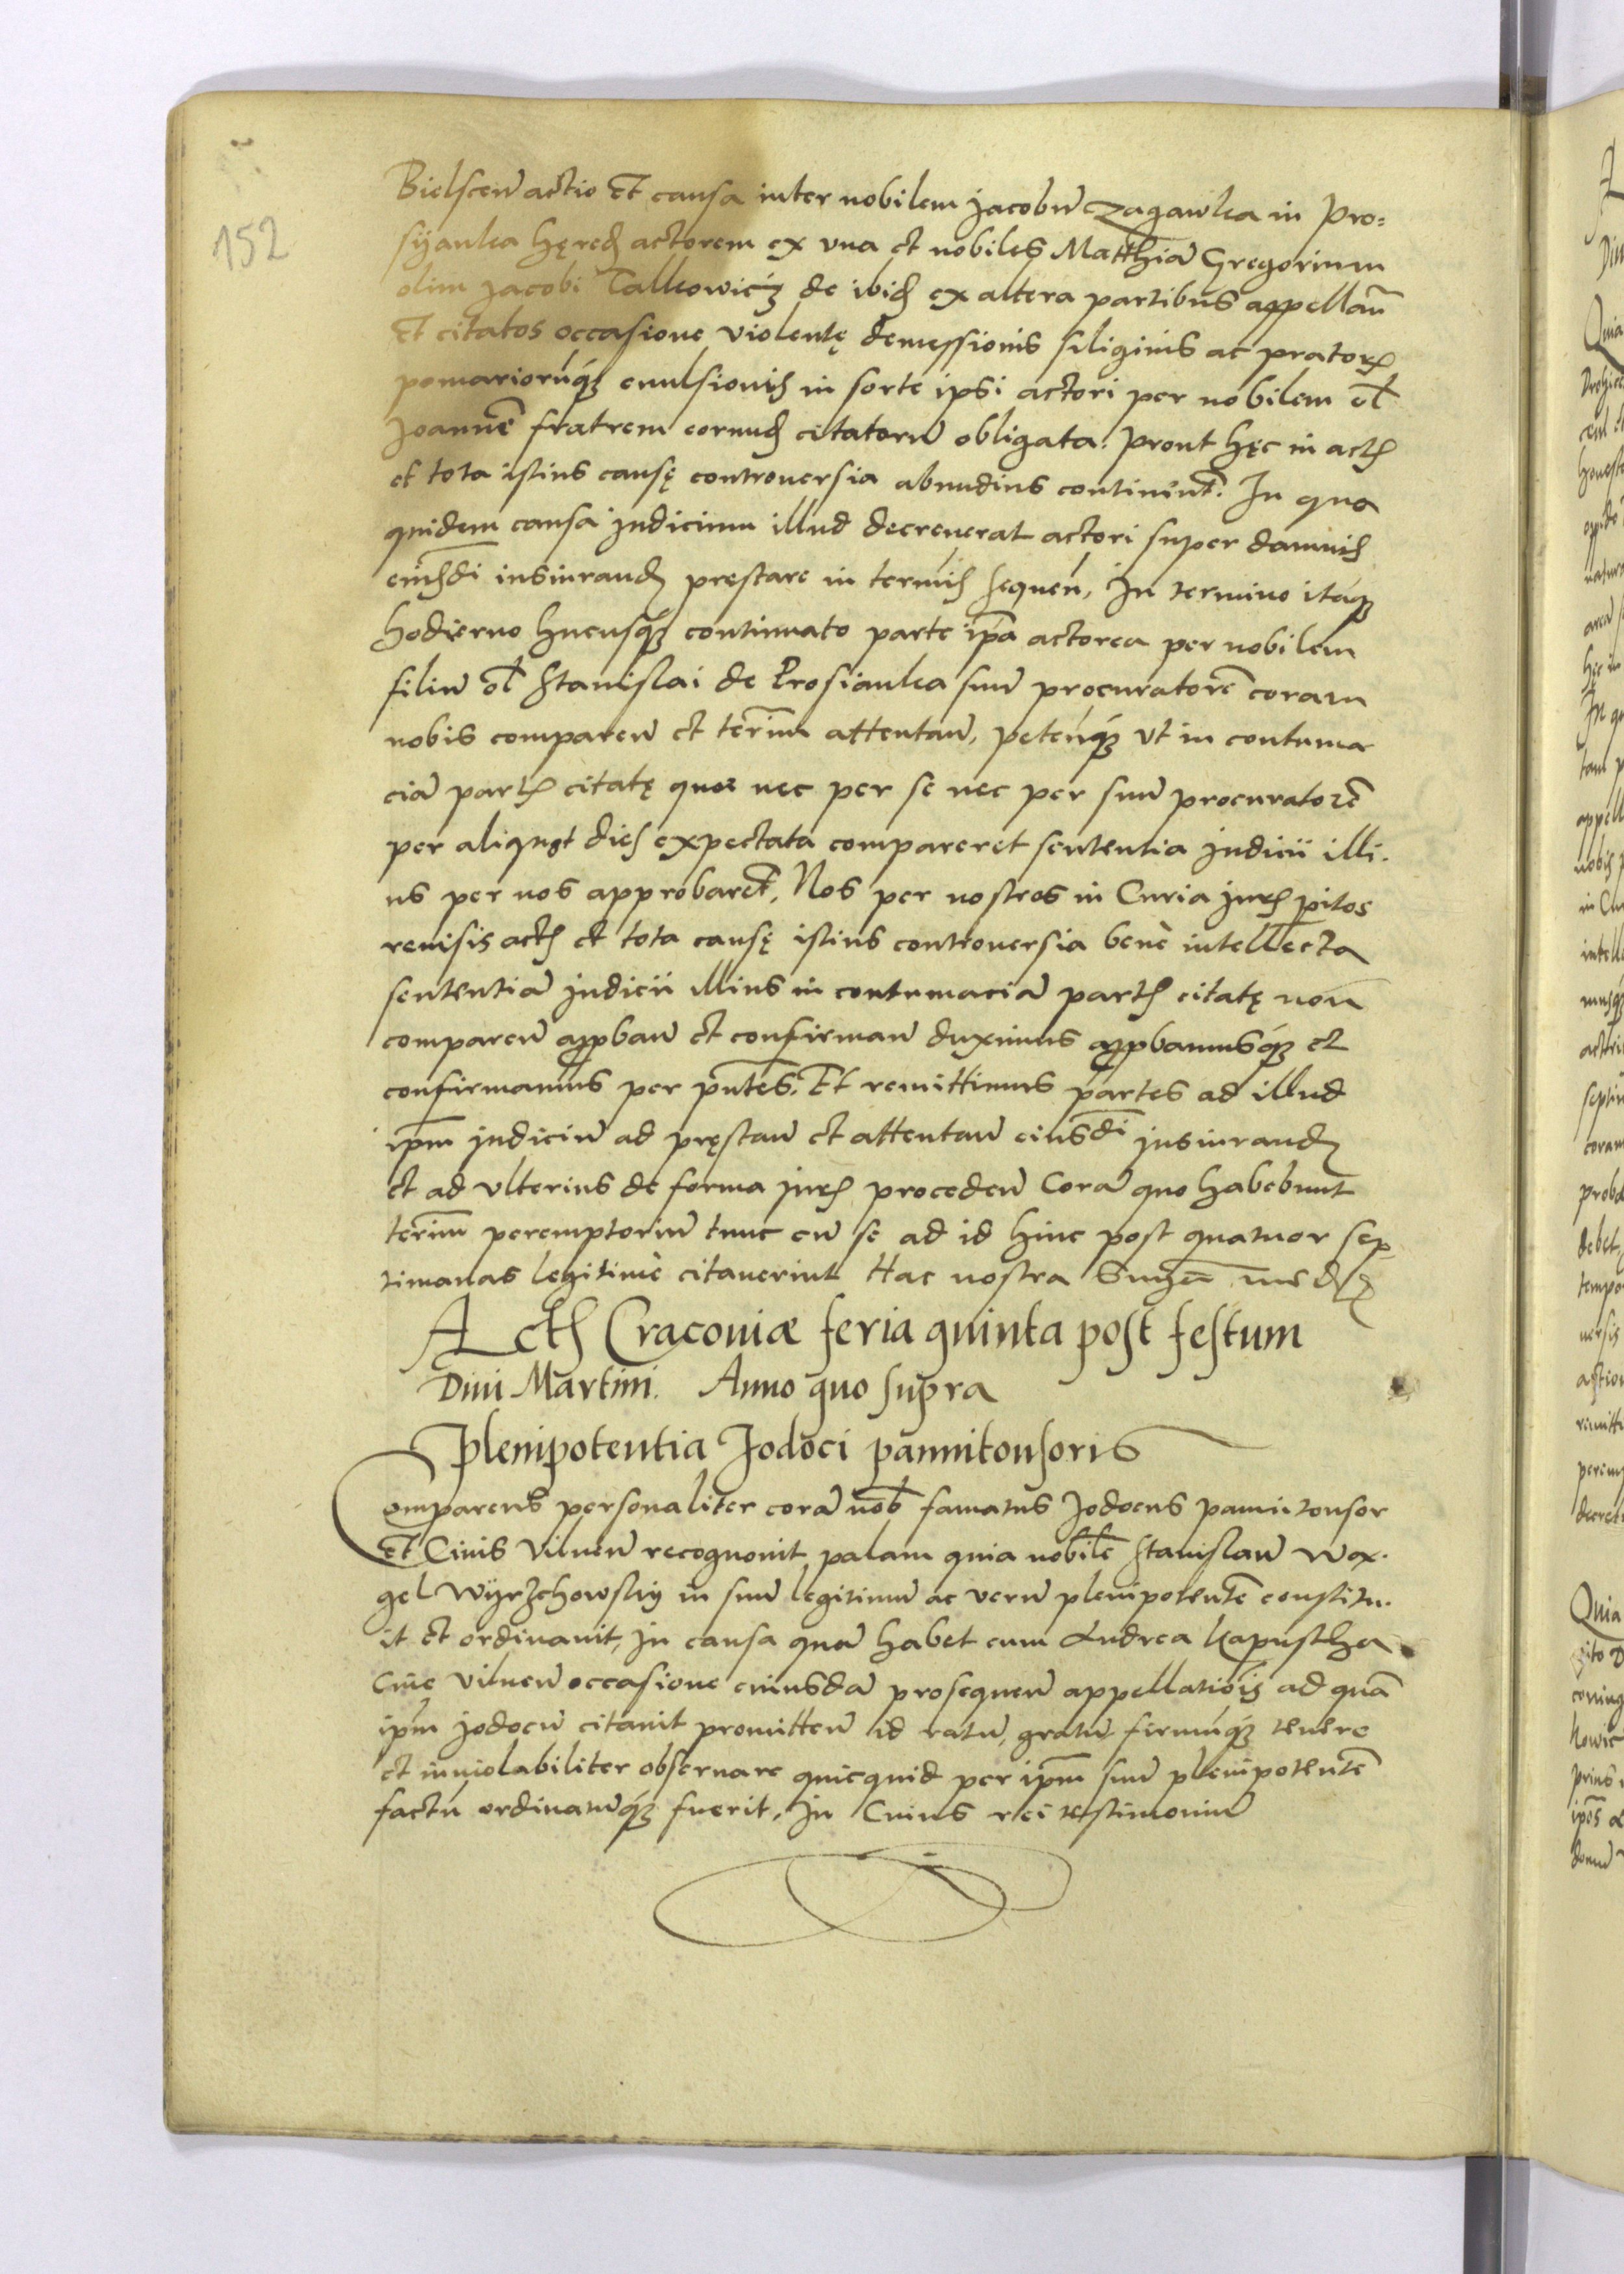 152
Bielscen̄ actio Et causa inter nobilem Jacobū Czagawka in Pro=
syanka hęred̄ actorem ex vna et nobiles Matthiā Gregorium
olim Jacobi Talkowicz de ibid̄ ex altera partibus appellan̄
Et citatos occasione violentę demessionis siliginis ac pratorꝝ
pomariorūqꝫ euulsionis in sorte ipsi actori per nobilem ol̄
Joannē fratrem eorund̄ citatorū obligata: prout hęc in actis
et tota istius causę controuersia abundius continent̄. In qua
quidem causa Judicium illud decreuerat actori super damnis
eiusdi iusiurand̄ pręstare in termis sequen̄, In termino itaqꝫ
hodierno hucusqꝫ continuato parte ip̄a actorea per nobilem
filiū ol̄ Stanislai de Prosianka suū procuratorē coram
nobis comparen̄ et term̄m attentan̄, petenqꝫ vt in contuma
ciā partis citatę quae nec per se nec per suū procuratorē
per aliquot dies expectata compareret sententia Judicii illi-
us per nos approbaret̄, Nos per nostros in Curia Juris p̄itos
reuisis actis et tota causę istius controuersia benè intellecta
sententiā Judicii illius in contumaciā partis citatę non
comparen̄ appban̄ et confirman̄ duximus appbamusqꝫ et
confirmamus per pn̄tes. Et remittimus partes ad illud
ip̄m Judiciū ad pręstan̄ et attentan̄ eiusdi iusiurand̄
et ad vlterius de forma juris proceden̄ Corā quo habebunt
term̄m peremptoriū tunc cū se ad id hinc post quatuor sep
timanas legitimè citauerint Hac nostra
Actis Cracouiæ feria quinta post festum
Diui Martini. Anno quo supra
Plenipotentia Jodoci pannitonsoris
Comparens personaliter corā nob̄ famatus Jodocus pannitonsor
Et Ciuis Vilnen̄ recognouit palam quia nobilē Stanislaū Wox-
gel Wyrzchowsky in suū legitimū ac verū plenipotentē constitu-
it et ordinauit, In causa quā habet cum Andrea Kapustha
Ciue Vilnen̄ occasione cuiusdā prosequen̄ appellatiōis ad quā
ip̄m Jodocū citauit promitten̄ id ratū, gratū firmūqꝫ tenere
et inuiolabiliter obseruare quicquid per ip̄m suū plenipotentē
factū ordinatūqꝫ fuerit, In Cuius rei testimoniū